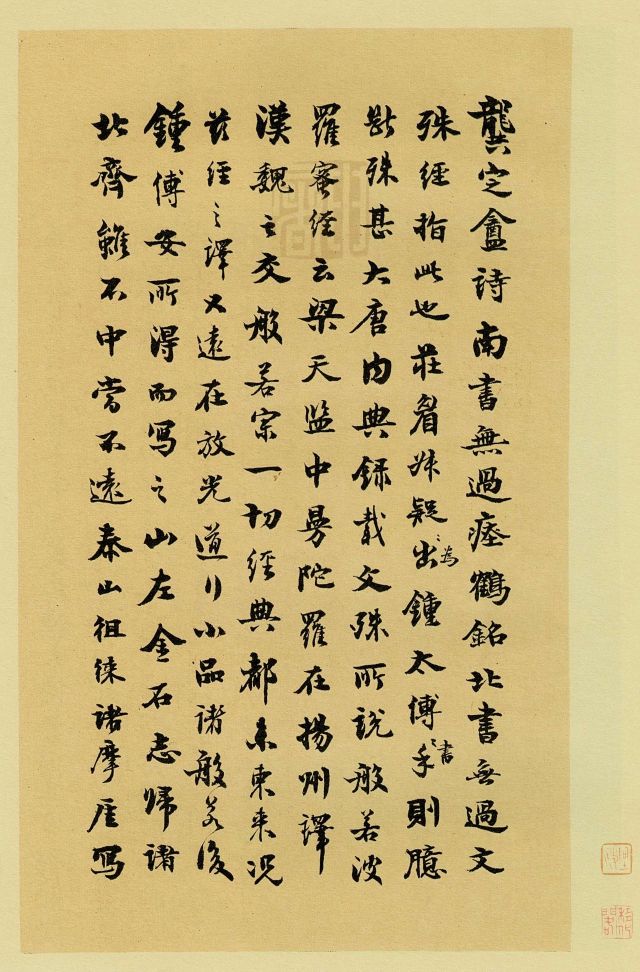 龔定盦詩南書無過瘞鶴銘北書無過文
殊經指此也莊眉叔疑為出鍾太傅手書則臆
斷殊甚大唐内典錄載文殊所說般若波
羅蜜經云梁天監中曼陀羅在揚州譯
漢魏之交般若宗一切經典都未東來况
茲經之譯又遠在放光道行小品諸般若後
鍾傅安所得而寫之山左金石志歸諸
北齊雖不中當不遠泰山徂徠諸摩厓寫